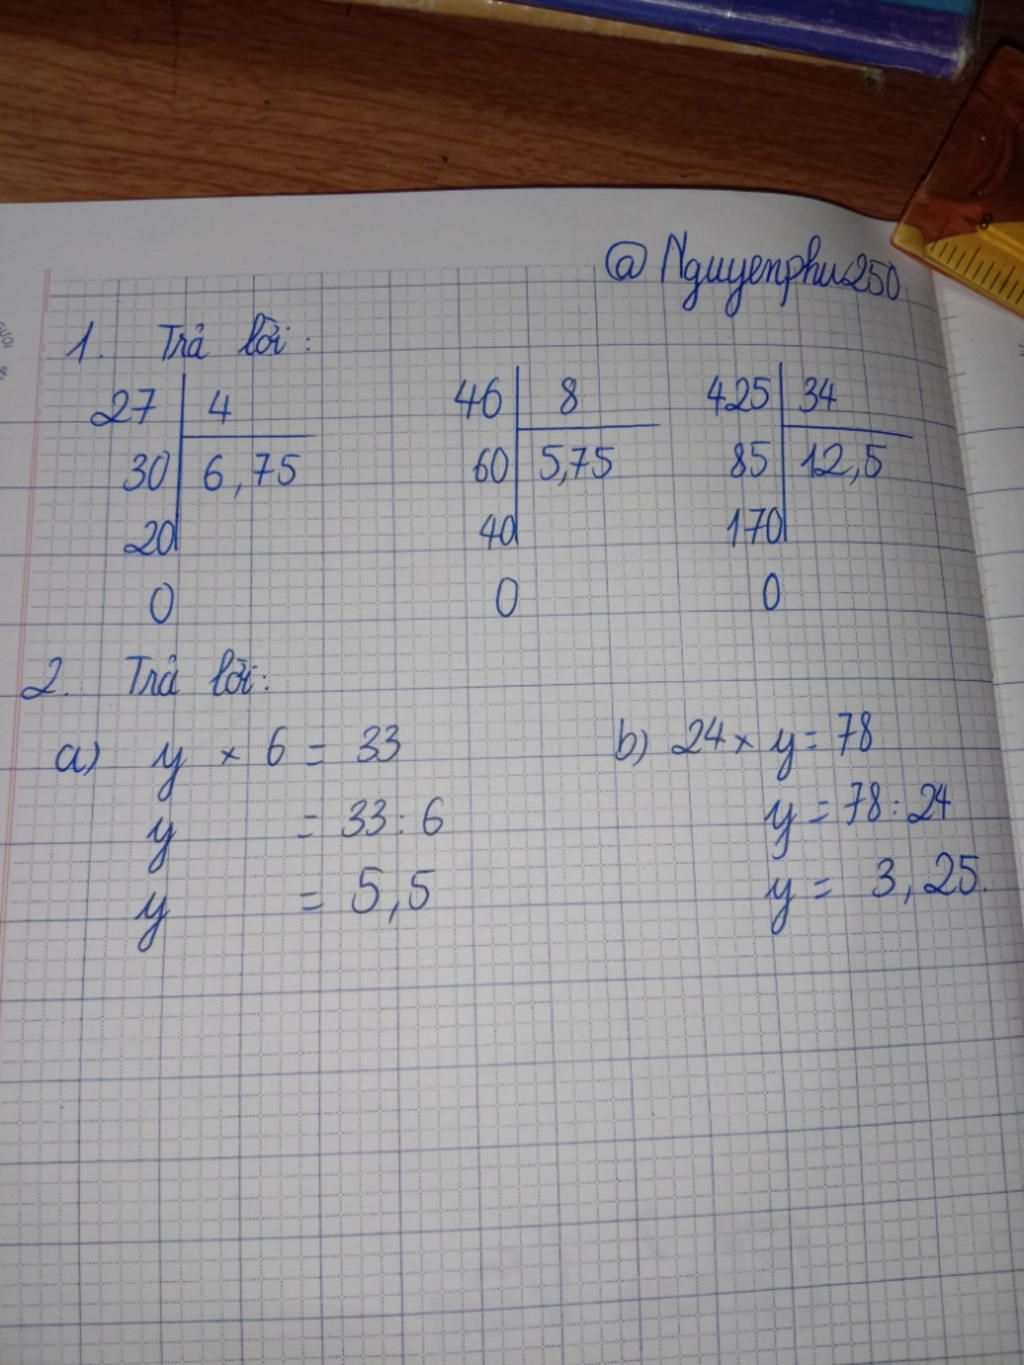 @Nguyenphu250
1. Trả lời:
27 4 46 8 425 34
30 6,75 60 5,75 85 12,5
20 40 170
0 0 0
2. Trả lời:
a) y × 6 = 33 b) 24 × y = 78
y = 33 : 6 y = 78 : 24
y = 5,5 y = 3,25.